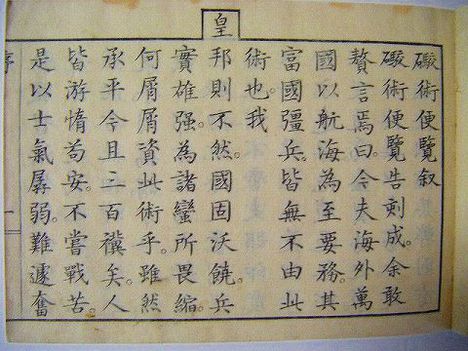 礮術便覽叙
礮術便覽告刻成。余敢
贅言焉。曰今夫海外萬
國以航海為至要務。其
富國彊兵。皆無不由此
術也。我
皇邦則不然。國固沃饒。兵
實雄强。為諸蠻所畏縮。
何屑屑資此術乎。雖然
承平今且三百禩矣。人
皆游惰苟安。不嘗戰苦。
是以士氣孱弱。難遽奮
序 一